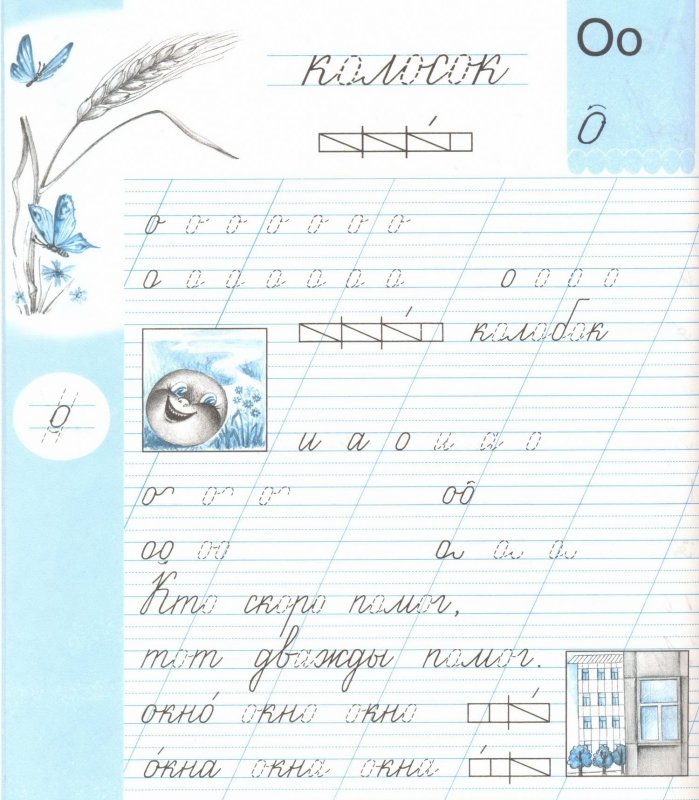 Оо
колосок
О
о о о о о о о
о о о о о о о о о о о
колобок
и а о и а о
о о о оо
оо оо о о о
Кто скоро помог,
тот дважды помог.
окно́ окно окно
о́кна окна окна
о